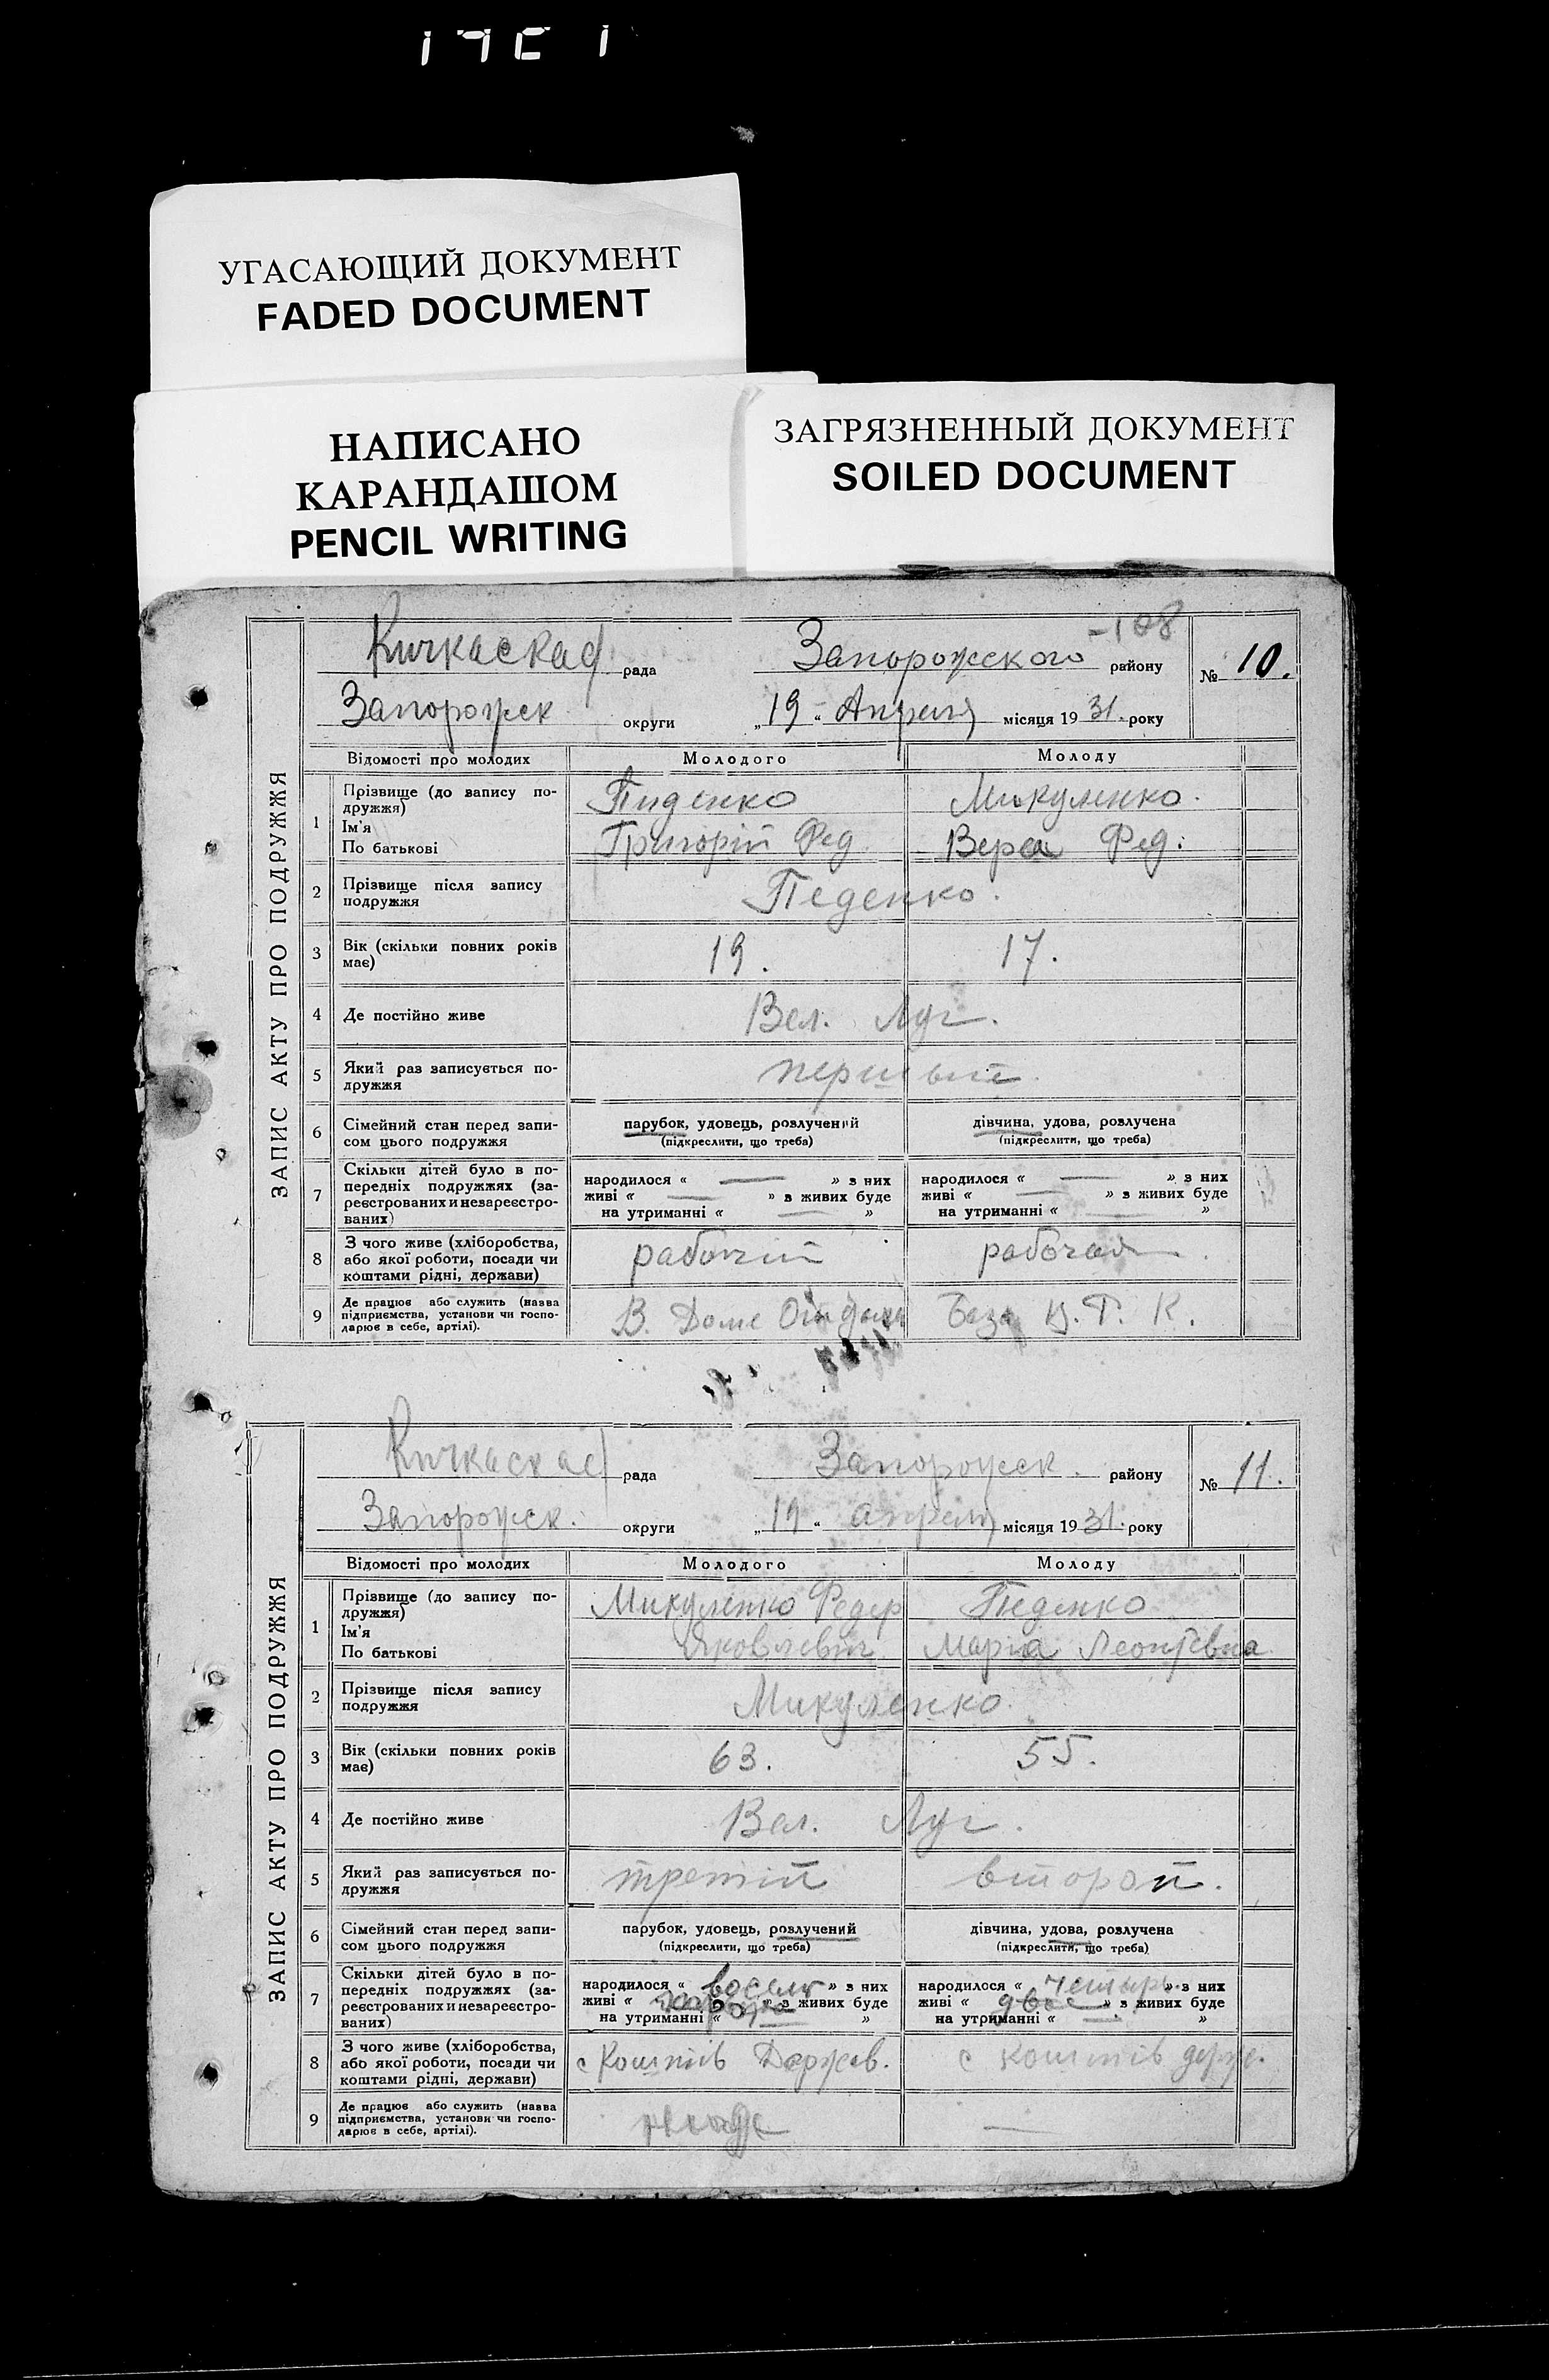 УГАСАЮЩИЙ ДОКУМЕНТ
FADED DOCUMENT
НАПИСАНО
КАРАНДАШОМ
PENCIL WRITING
ЗАГРЯЗНЕННЫЙ ДОКУМЕНТ
SOILED DOCUMENT
ЗАПИС АКТУ ПРО ПОДРУЖЖЯ
-108
Кичкаская рада Запорожского району № 10.
Запорожск округи „19“ Апреля місяця 1931. року
Відомості про молодих Молодого Молоду
1 Прізвище (до запису по-
дружжя)
Ім'я
По батькові
Пиденко Микуленко.
Григорій Фед. Вера Фед.
2 Прізвище після запису
подружжя
Педенко.
3 Вік (скільки повних років
має)
19. 17.
4 Де постійно живе Вел. Луг.
5 Який раз записується по-
дружжя
первый
6 Сімейний стан перед запи-
сом цього подружжя
парубок, удовець, розлучений
(підкреслити, що треба)
дівчина, удова, розлучена
(підкреслити, що треба)
7 Скільки дітей було в по-
передніх подружжях (за-
реєстрованих и незареєстро-
ваних)
народилося « — » з них
живі « — » з живих буде
на утриманні « — »
народилося « — » з них
живі « — » з живих буде
на утриманні « — »
8 З чого живе (хліборобства,
або якої роботи, посади чи
коштами рідні, держави)
рабочий рабочая
9 Де працює або служить (назва
підприємства, установи чи госпо-
дарює в себе, артілі).
В. Доме Отдыха База Ц. Р. К.
ЗАПИС АКТУ ПРО ПОДРУЖЖЯ
Кичкаская рада Запорожск. району № 11.
Запорожск. округи „19“ апреля місяця 1931. року
Відомості про молодих Молодого Молоду
1 Прізвище (до запису по-
дружжя)
Ім'я
По батькові
Микуленко Федер Педенко
Яковлевич Марія Леонтевна
2 Прізвище після запису
подружжя
Микуленко.
3 Вік (скільки повних років
має)
63. 55.
4 Де постійно живе Вел. Луг.
5 Який раз записується по-
дружжя
третій второй.
6 Сімейний стан перед запи-
сом цього подружжя
парубок, удовець, розлучений
(підкреслити, що треба)
дівчина, удова, розлучена
(підкреслити, що треба)
7 Скільки дітей було в по-
передніх подружжях (за-
реєстрованих и незареєстро-
ваних)
народилося « восем » з них
живі « » з живих буде
на утриманні « — »
народилося « четыре » з них
живі « двое » з живих буде
на утриманні « — »
8 З чого живе (хліборобства,
або якої роботи, посади чи
коштами рідні, держави)
с Коштів Держав. с коштів держ.
9 Де працює або служить (назва
підприємства, установи чи госпо-
дарює в себе, артілі).
—